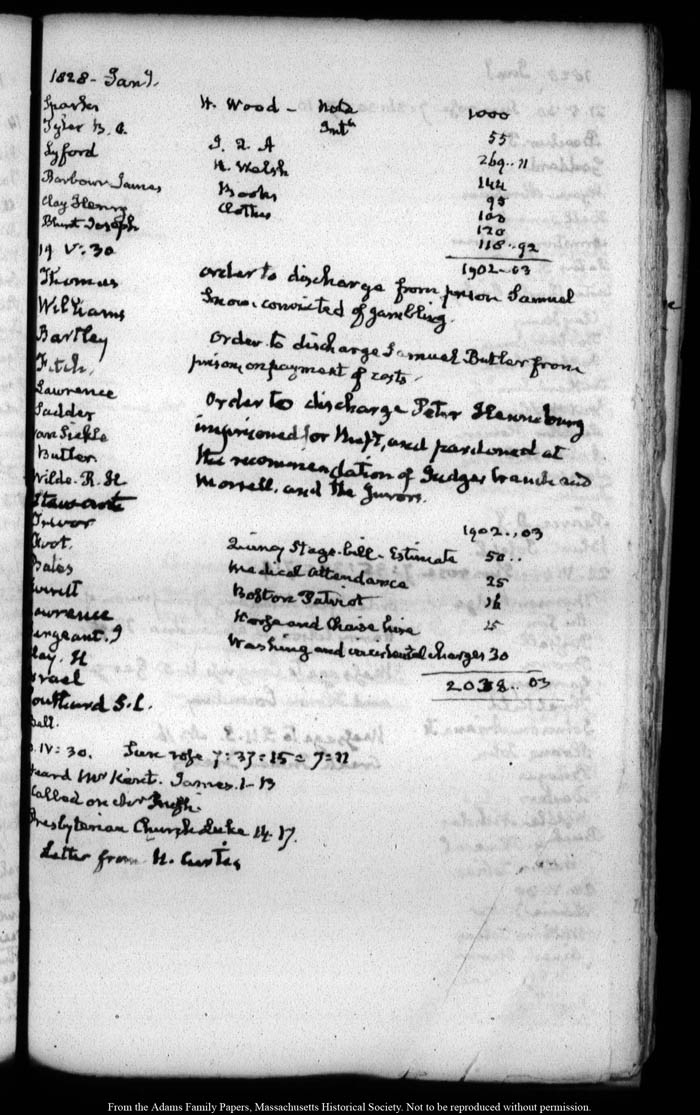 1828 - Jany.
Sparks H. Wood - Note 1000
Tyler B. O. Intt. 55
Lyford J. Q. A 269..11
Barbour James H. Welsh 144
Clay Henry Books 95
Blunt Joseph Clothes 100
120
19 V: 30 118..92
1902-03
Thomas order to discharge from prison Samuel
Williams Snow. convicted of gambling.
Bartley order to discharge Samuel Butler from
Fitch. prison, on payment of costs.
Lawrence order to discharge Peter
Sadder imprisoned for theft, and pardoned at
van Sickle the recommendation of Judges Cranch and
Butler Morsell. and the Jurors.
Wilde. R. H
Stewart 1902..03
Trevor Quincy Stage-bill - Estimate 50..
Medical attendance 25
Bates Boston Patriot 16
Everett Horse and Chaise hire 15
awrence Washing and incidental charges 30
ergeant. J
lay. H 2038..03
srael
outhard S. L.
Bell.
IV: 30. Sun rose 7:37=15=7=22
Heard Mr Kent. James. 1-13
Called on
Presbyterian Church Luke 14. 17.
Letter from H. Curtis
From the Adams Family Papers, Massachusetts Historical Society. Not to be reproduced without permission.